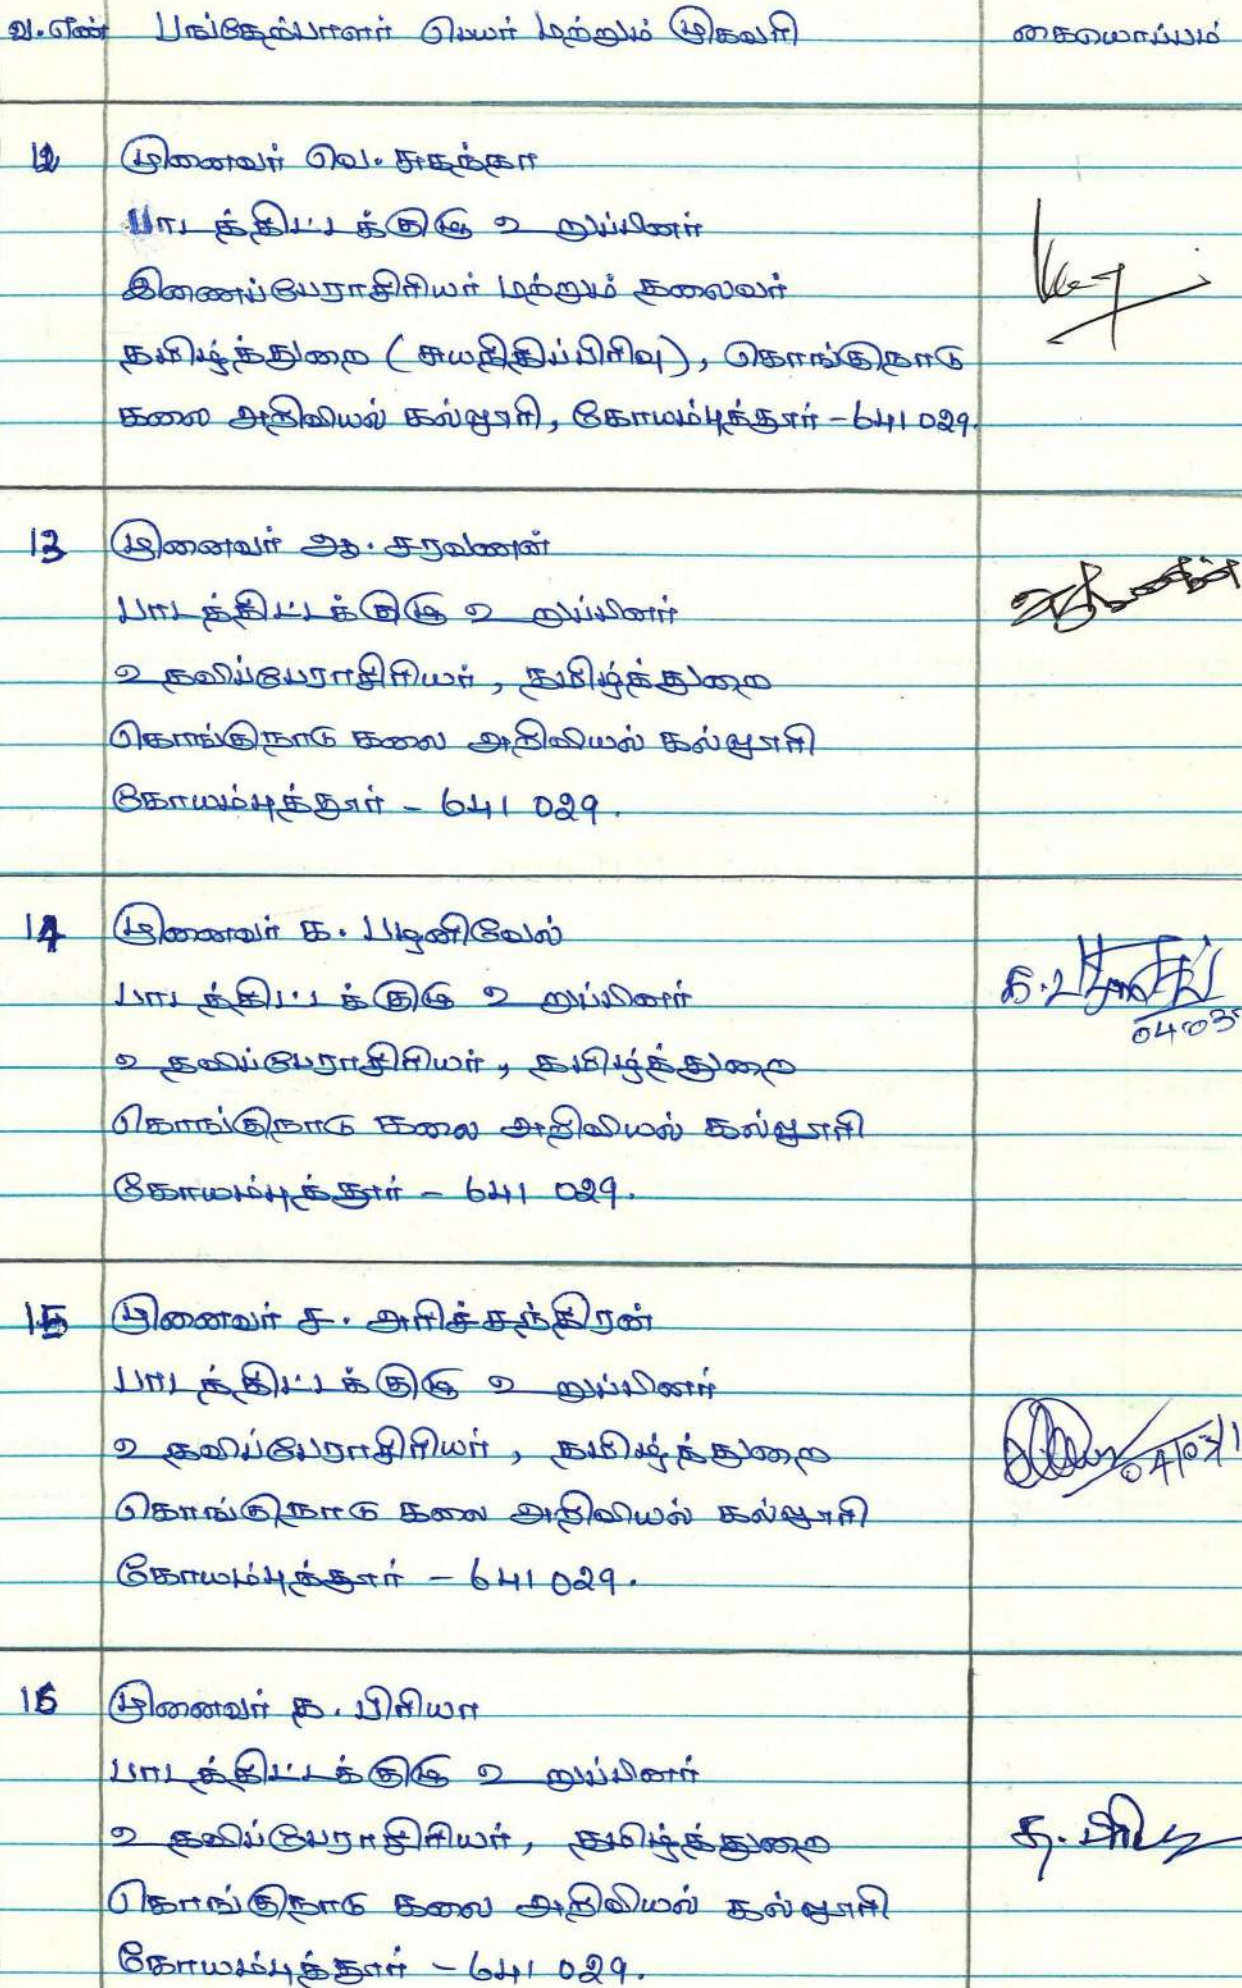 வ.எண் பங்கேற்பாளர் பெயர் மற்றும் முகவரி கையொப்பம்
12 முனைவர் வெ. சுகந்தா
பாடத்திட்டக்குழு உறுப்பினர்
இணைப்பேராசிரியர் மற்றும் தலைவர்
தமிழ்த்துறை (சுயநிதிப்பிரிவு), கொங்குநாடு
கலை அறிவியல் கல்லூரி, கோயம்புத்தூர் - 641 029.
13 முனைவர் ஆ. சரவணன்
பாடத்திட்டக்குழு உறுப்பினர்
உதவிப்பேராசிரியர், தமிழ்த்துறை
கொங்குநாடு கலை அறிவியல் கல்லூரி
கோயம்புத்தூர் - 641 029.
14 முனைவர் க. பழனிவேல்
பாடத்திட்டக்குழு உறுப்பினர்
04.03
உதவிப்பேராசிரியர், தமிழ்த்துறை
கொங்குநாடு கலை அறிவியல் கல்லூரி
கோயம்புத்தூர் - 641 029.
15 முனைவர் ச. அரிச்சந்திரன்
பாடத்திட்டக்குழு உறுப்பினர்
உதவிப்பேராசிரியர், தமிழ்த்துறை 04/03/1
கொங்குநாடு கலை அறிவியல் கல்லூரி
கோயம்புத்தூர் - 641 029.
16 முனைவர் த. பிரியா
பாடத்திட்டக்குழு உறுப்பினர்
உதவிப்பேராசிரியர், தமிழ்த்துறை த. பிரியா
கொங்குநாடு கலை அறிவியல் கல்லூரி
கோயம்புத்தூர் - 641 029.